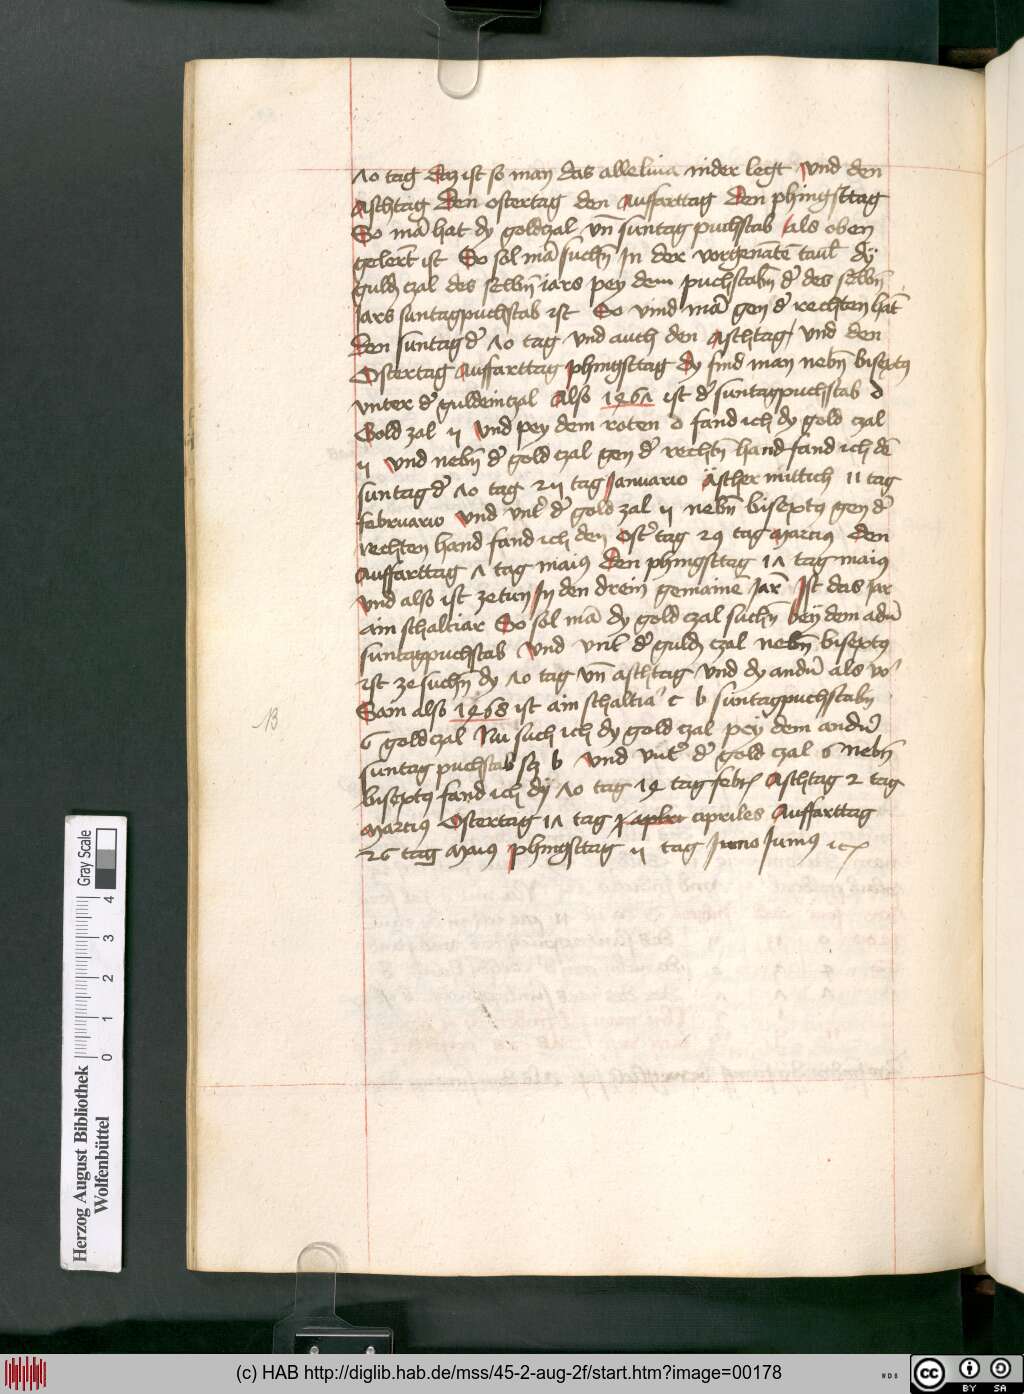 ⁊o tag daz ist so man das alleluia nider legt Vnd den
Aschtag Den ostertag den Auffarttag Den phingsttag
So mā hat dy goldczal vn̄ suntag puchstab Als oben
gelert ist So sol mā suchn̄ In der vorgenātē tauł dy
guldy czal des selbn̄ iars pey dem puchstabn̄ der des selbn̄
Jars suntagpuchstab ist So vind mā gen der rechten hāt
den suntag der ⁊o tag vnd auch den Aschtag / Vnd den
Ostertag Auffarttag phingsttag Dy find man nebn̄ bisextus
vnter der guldein czal Also 1467 ist der suntagpuchstab d
Gold zal ij Vnd pey dem roten d fand ich dy gold czal
ij Vnd nebn̄ der gold czal gen der rechtn̄ hand fand ich dē
suntag der ⁊o tag tag Januario Ascher mittich 11 tag
februario Vnd vnter der gold zal ij nebn̄ bisextus gen der
rechten hand fand ich den Oster tag 29 tag Marcius Den
Auffarttag 7 tag maius Den phingsttag 17 tag maius
Vnd also ist ze tun In den drein gemainē Jarn Ist das jar
ain schaltiar So sol mā dy gold czal suchn̄ bey dem andern
suntagpuchstab Vnd vnter der guldy czal nebn̄ bisextus
ist ze suchn̄ dy ⁊o tag vn̄ aschtag Vnd dy andern als vor
Sam also 1468 ist ain schaltiar c b suntagpuchstabn̄
6 gold czal Nu such ich dy gold czal pey dem andern
suntag puchstab scz b Vnd vnter der gold czal 6 nebn̄
bisextus fand ich dy ⁊o tag 14 tag febr Aschtag 2 tag
Marcius Ostertag 17 tag apriles Auffarttag
26 tag Maius phingsttag tag Junio Junius
13
Herzog August Bibliothek
Wolfenbüttel
0 1 2 3 4
Gray Scale
(c) HAB http://diglib.hab.de/mss/45-2-aug-2f/start.htm?image=00178
cc BY SA